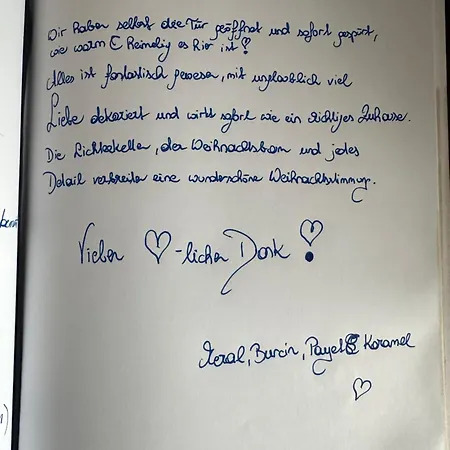 Wir haben selbst die Tür geöffnet und sofort gespürt,
wie warm & Heimelig es hier ist!
Alles ist fantastisch gewesen, mit unglaublich viel
Liebe dekoriert und wirkt sofort wie ein richtiges Zuhause.
Die Lichterketten, der Weihnachtsbaum und jedes
Detail verbreiten eine wunderschöne Weihnachtsstimmung.
Vielen ♡-lichen Dank !
Meral, Burcin, Payel & Karamel
♡